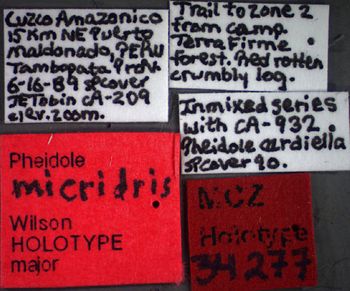 Cuzco Amazonico
15Km NE Puerto
Maldonado, PERU
Tambopata Prov.
6-16-89 SPCover
JETobin CA-209
elev. 200m.
Trail to Zone 2
from camp.
Terra Firme
forest. Red rotten
crumbly log.
In mixed series
with CA-932.
Pheidole ardiella
SPCover 90.
Pheidole
micridris
Wilson
HOLOTYPE
major
MCZ
Holotype
34277